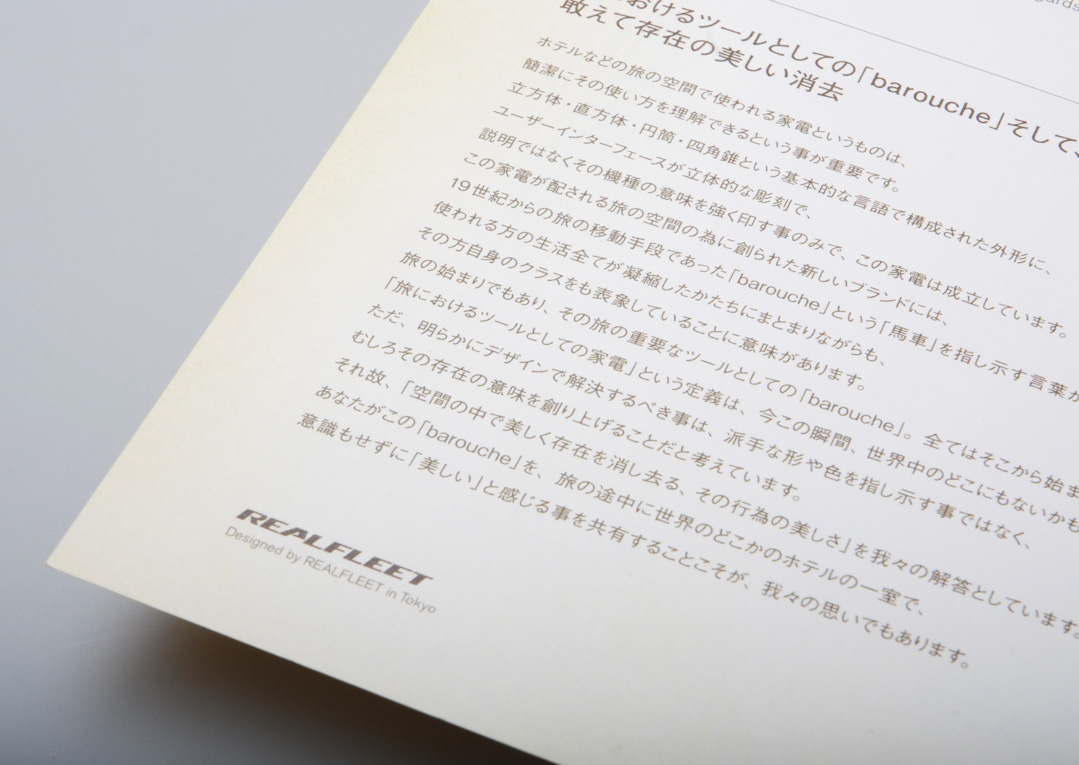 gards
おけるツールとしての「barouche」そして、
敢えて存在の美しい消去
ホテルなどの旅の空間で使われる家電というものは、
簡潔にその使い方を理解できるという事が重要です。
立方体・直方体・円筒・四角錐という基本的な言語で構成された外形に、
ユーザーインターフェースが立体的な彫刻で、
説明ではなくその機種の意味を強く印す事のみで、この家電は成立しています。
この家電が配される旅の空間の為に創られた新しいブランドには、
19世紀からの旅の移動手段であった「barouche」という「馬車」を指し示す言葉が
使われる方の生活全てが凝縮したかたちにまとまりながらも、
その方自身のクラスをも表象していることに意味があります。
旅の始まりでもあり、その旅の重要なツールとしての「barouche」。全てはそこから始ま
「旅におけるツールとしての家電」という定義は、今この瞬間、世界中のどこにもないかも
ただ、明らかにデザインで解決するべき事は、派手な形や色を指し示す事ではなく、
むしろその存在の意味を創り上げることだと考えています。
それ故、「空間の中で美しく存在を消し去る、その行為の美しさ」を我々の解答としています。
あなたがこの「barouche」を、旅の途中に世界のどこかのホテルの一室で、
意識もせずに「美しい」と感じる事を共有することこそが、我々の思いでもあります。
REALFLEET
Designed by REALFLEET in Tokyo